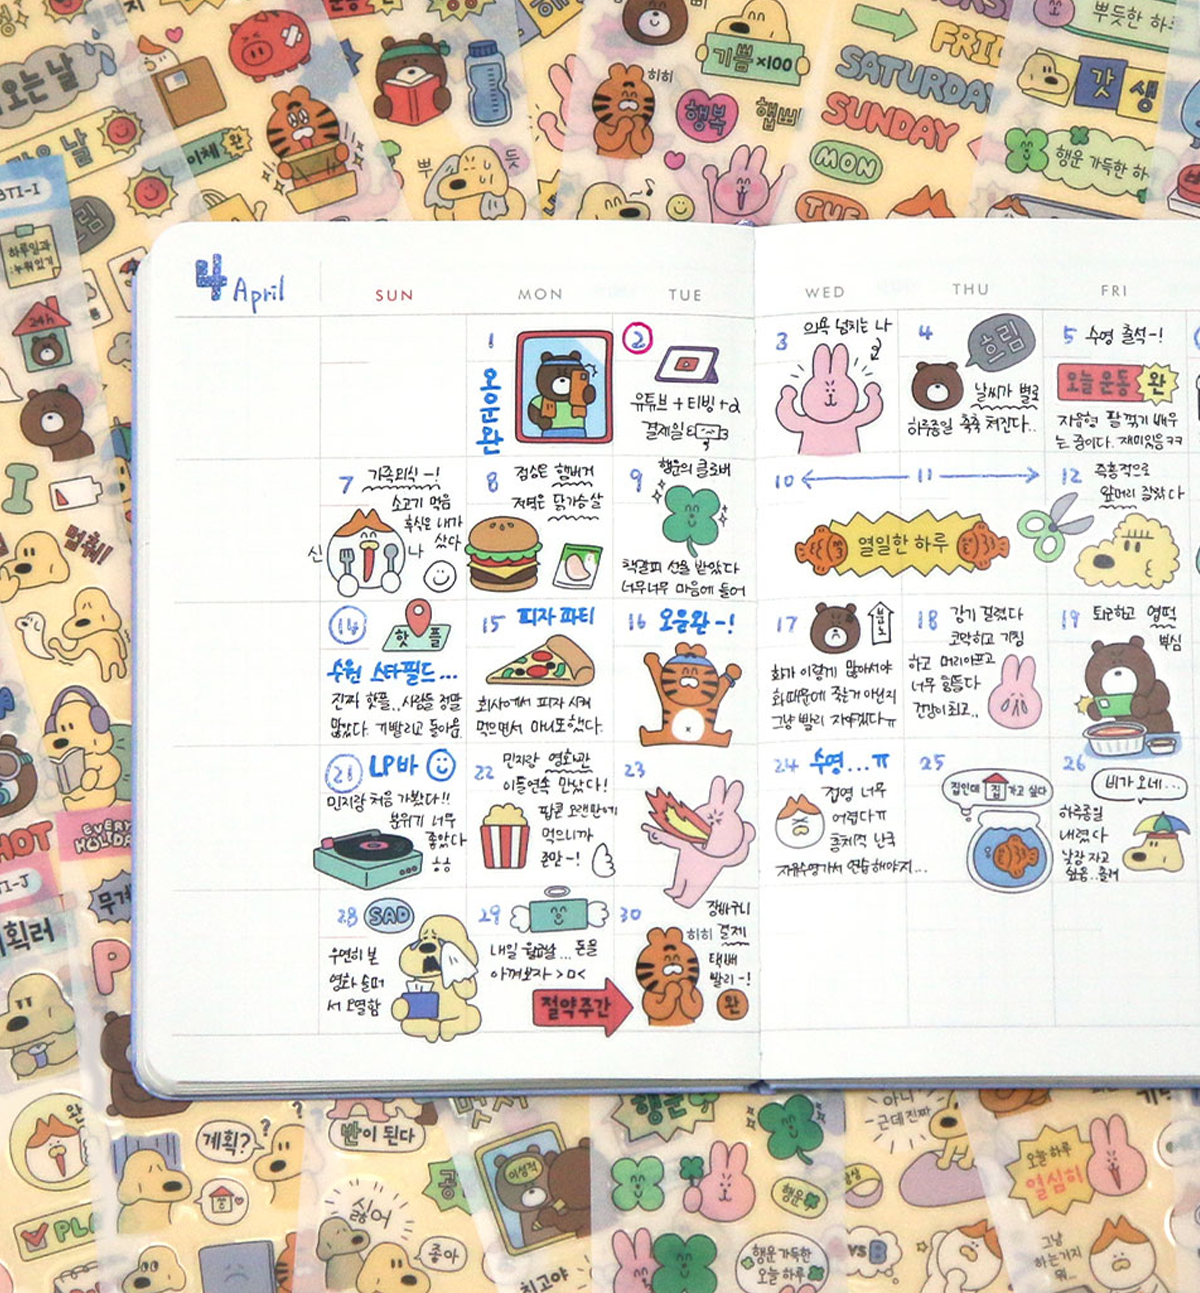 오는 날
기쁨 ×100
히히
행복
햅삐
FRI
SATURDAY
SUNDAY
MON
TUE
갓생
뿌듯한 하루
행운 가득한 하
뿌
듯
BTI-I
하루일과
:누워있기
24h
멈춰!
HOT
EVERY
HOLIDAY
TI-J
획러
4 April
SUN
MON
TUE
WED
THU
FRI
1
오운완
2
유튜브 + 티빙 + α
결제일
3
의욕 넘치는 나
4
흐림
날씨가 별로
하루종일 축축 쳐진다..
5 수영 출석-!
오늘 운동 완
자유형 팔 꺾기 배우
는 중이다. 재미있음 ㅋㅋ
7 가족외식-!
소고기 먹음
후식은 내가
샀다
신
나
8 점심은 햄버거
저녁은 닭가슴살
9 행운의 클로버
책갈피 선물 받았다
너무너무 마음에 들어
10
11
열일한 하루
12 즉흥적으로
앞머리 잘랐다
14
핫플
수원 스타필드...
진짜 핫플.. 사람들 정말
많았다. 기빨리고 돌아옴
15 피자 파티
회사에서 피자 시켜
먹으면서 마셔도했다.
16 오운완-!
17
분노
화가 이렇게 많아서야
화 때문에 죽는거 아닌지
그냥 빨리 자야겠다ㅠ
18 감기 걸렸다
코막히고 기침
하고 머리아프고
너무 힘들다
건강이최고..
19 퇴근하고 엽떡
뿌심
21 LP바
민지랑 처음 가봤다!!
분위기 너무
좋았다
ㅎㅎ
22 민지랑 영화관
이틀연속 만났다!
팝콘 오랜만에
먹으니까
존맛-!
23
24 수영...ㅠ
접영 너무
어렵다ㅠ
총체적 난국
자유수영가서 연습해야지...
25
집인데 집 가고 싶다
26
비가 오네...
하루종일
내렸다
낮잠 자고
싶음..졸려
28 SAD
우연히 본
영화 슬퍼
서 오열함
29
내일 월급날... 돈을
아껴보자 >ㅁ<
절약 주간
30
장바구니
히히 결제
택배
빨리-!
완
계획?
?
반이 된다
싫어
좋아
이성적
최고야
행운
행운
행운 가득한
오늘 하루
VS B
아니
근데진짜
오늘 하루
열심히
그냥
하는거지
뭐...